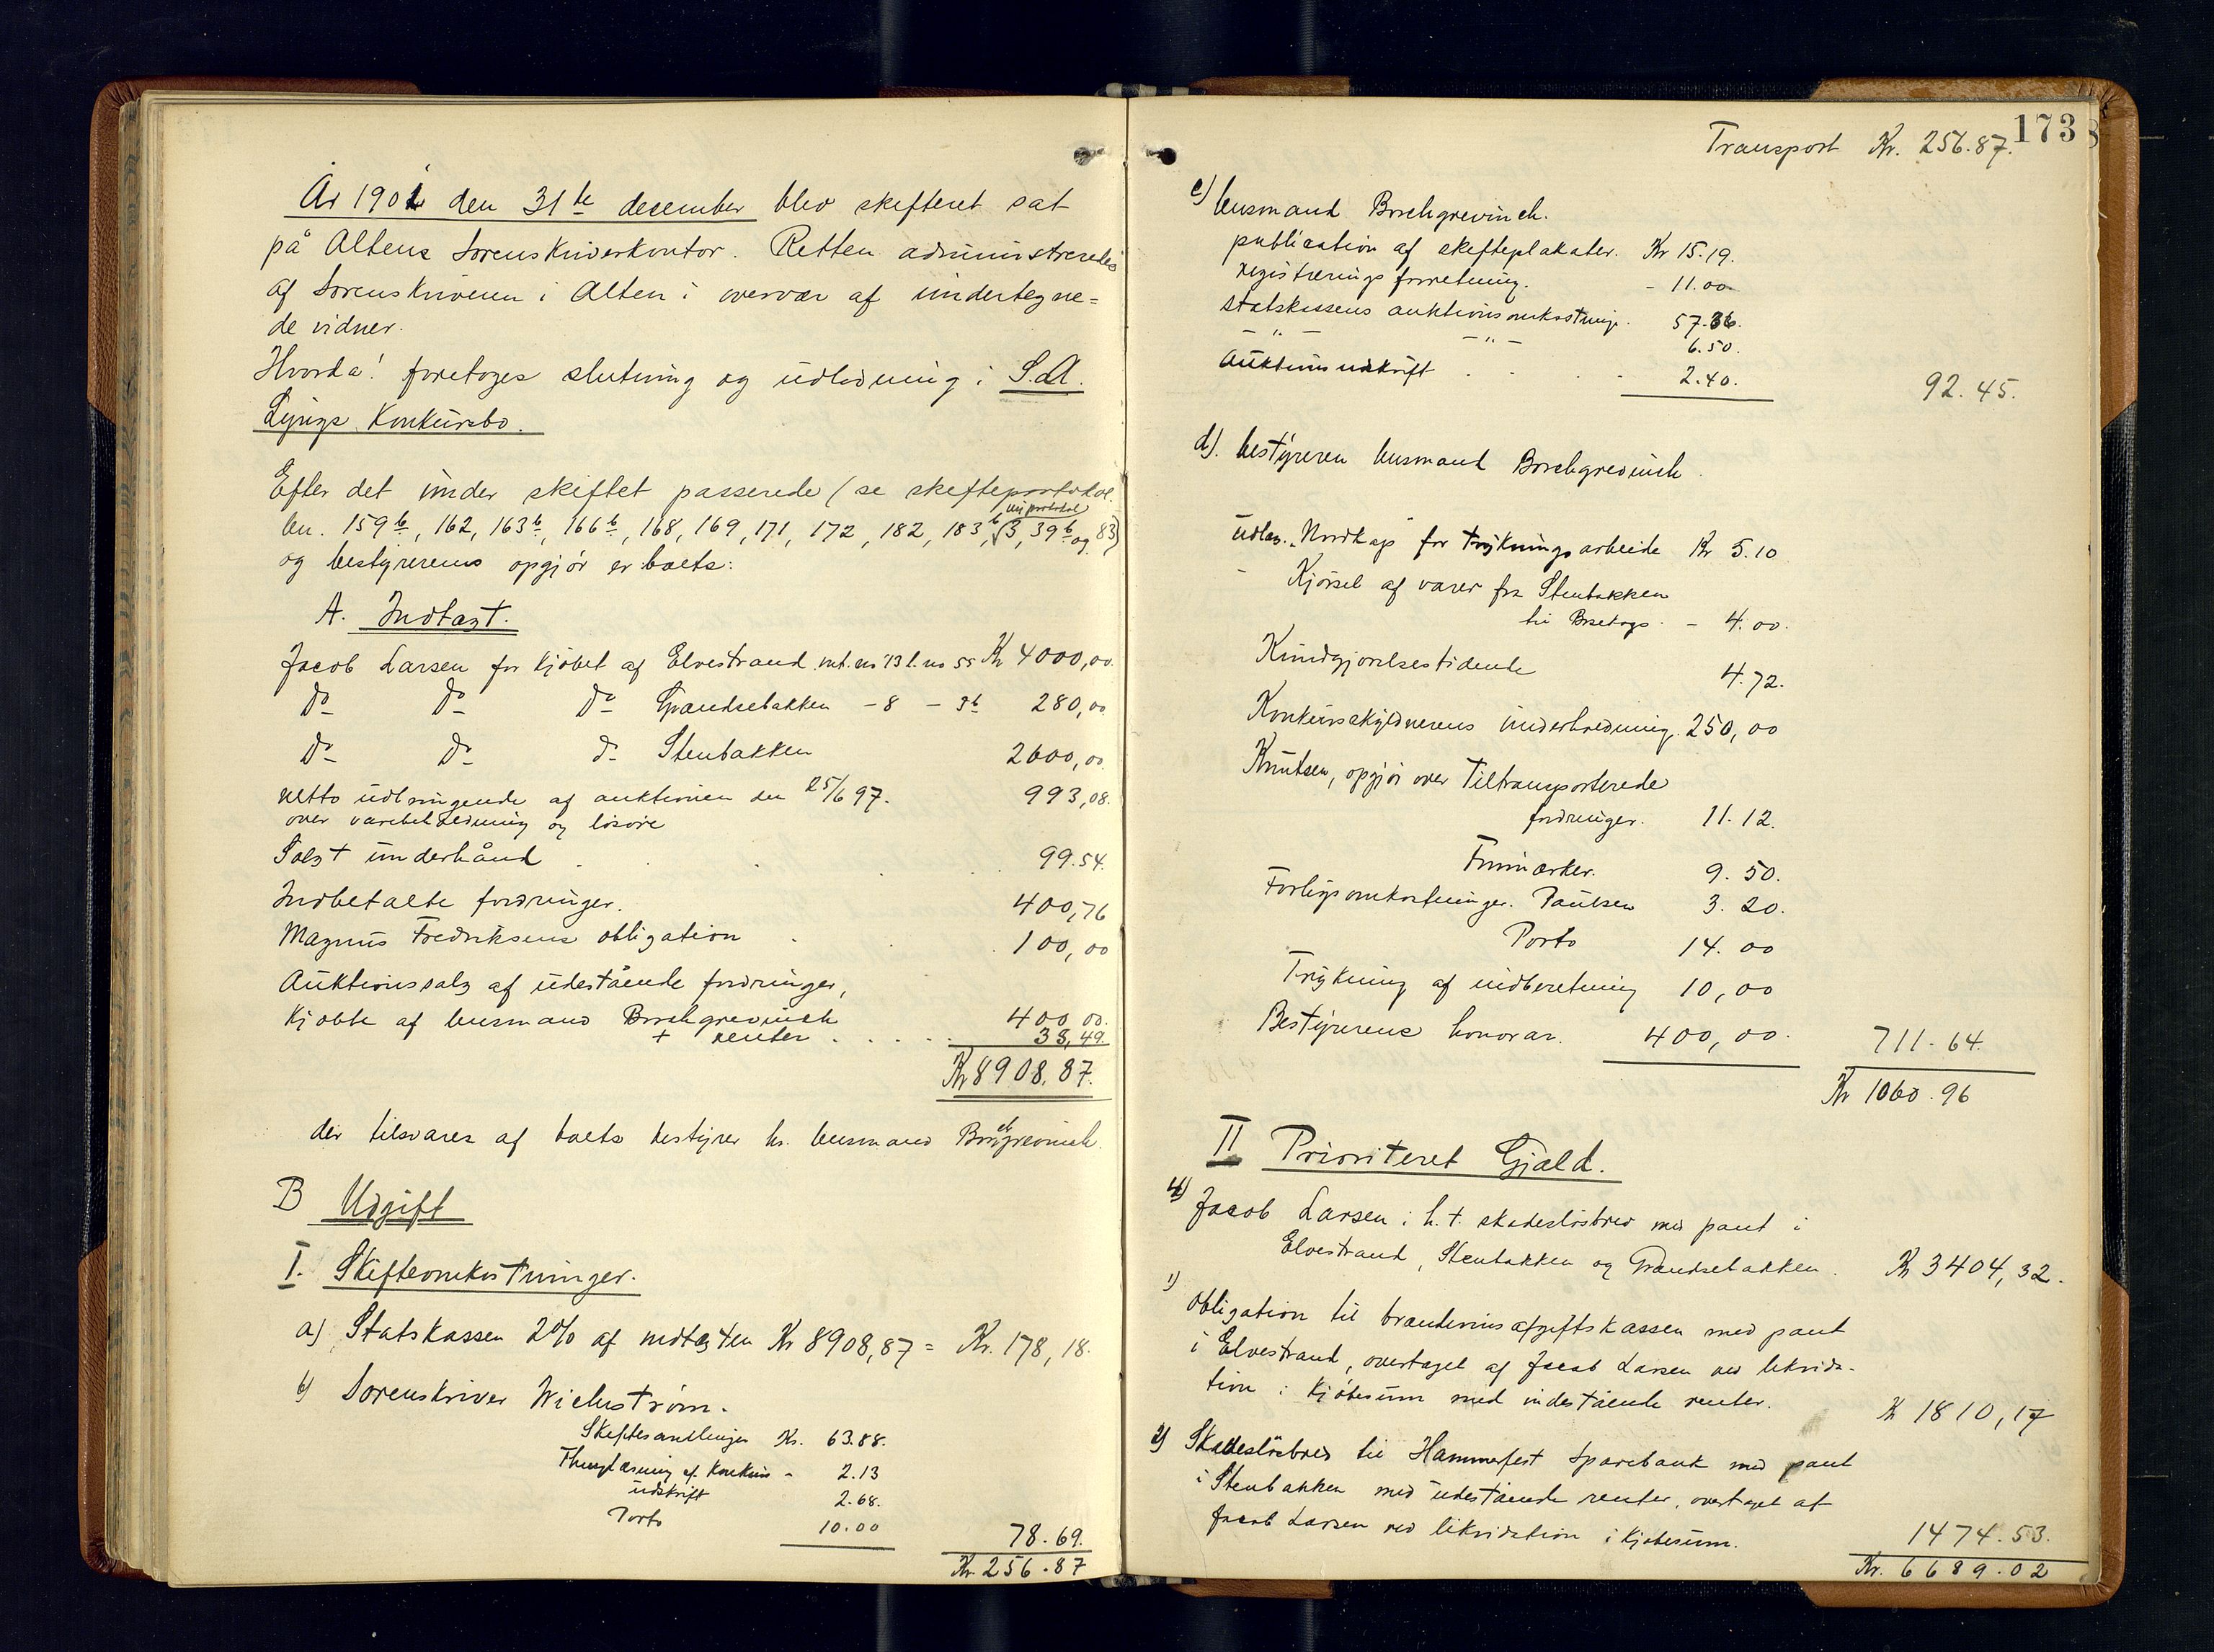 År 1901 den 31te december blev skifteret sat
på Altens Sorenskriverkontor. Retten administreredes
af Sorenskriveren i Alten i overvær af undertegne=
de vidner.
Hvorda! foretoges slutning og udlodning i S. A.
Lyngs Konkursbo.
Efter det under skiftet passerede (se skifteprotokol
len. 159b, 162, 163b, 166b, 168, 169, 171, 172, 182, 183b, 3, 39b og 83)
og bestyrerens opgjör er boets:
A. Indtægt.
Jacob Larsen for kjöbet af Elvestrand mt. no 13 l. no 55 Kr 4000,00.
Do Do Do Grændsebakken - 8 - 3b 280,00
Do Do Do Stenbakken 2600,00.
netto udbringende af auktionen den 25/6 97. 993,08.
over varebeholdning og lösöre
Solgt underhånd 99.54.
Indbetalte fordringer. 400,76
Magnus Fredriksens obligation 100,00
Auktionssalg af udestående fordringer,
Kjöbte af lensmand Borchgrevinck 400,00.
+ renter 38,49.
Kr 8908.87.
der tilsvares af boets bestyrer hr. lensmand Borchgrevinck.
B Udgift
I. Skifteomkostninger.
a) Statskassen 2% af indtægten Kr 8908,87 = Kr. 178,18.
b) Sorenskriver Wichström.
Skiftesamlinger Kr. 63.88.
Thinglæsning af konkurs - 2.13
udskrift 2.68.
Porto 10.00
78.69.
Kr. 256.87
173
Transport Kr. 256.87.
c) lensmand Borchgrevinck.
publication af skifteplakater. Kr 15.19.
registrerings forretning. - 11.00
statskassens auktionsomkostninge. 57.36.
- " - - " - 6.50.
Auktionsudskrift 2.40.
92.45.
d). bestyreren lensmand Borchgrevinck
Udlæg. "Nordkap" for trykningsarbeide Kr 5.10
- Kjörsel af varer fra Stenbakken
til Bosekops. - 4.00.
Kundgjørelsestidende 4.72.
Konkursskyldnerens underholdning. 250,00
Knutsen, opgjör over Tiltransporterede
fordringer. 11.12.
Frimærker. 9.50.
Forligsomkostninger. Paulsen 3.20.
Porto 14.00
Trykning af indberetning 10,00
Bestyrerens honorar. 400,00.
711.64.
Kr 1060.96
II Prioriteret Gjæld.
Jacob Larsen i h. t. skadeslösbrev med pant i
Elvestrand, Stenbakken og Grændsebakken. Kr 3404,32.
1) Obligation til brændevinsafgiftskassen med pant
i Elvestrand, overtaget af Jacob Larsen ved likvida-
tion i kjöbesum med indestående renter. Kr 1810,17
2) Skadeslösbrev til Hammerfest Sparebank med pant
i Stenbakken med udestående renter, overtaget af
Jacob Larsen ved likvidation i kjöbesum. 1474.53.
Kr. 6689.02